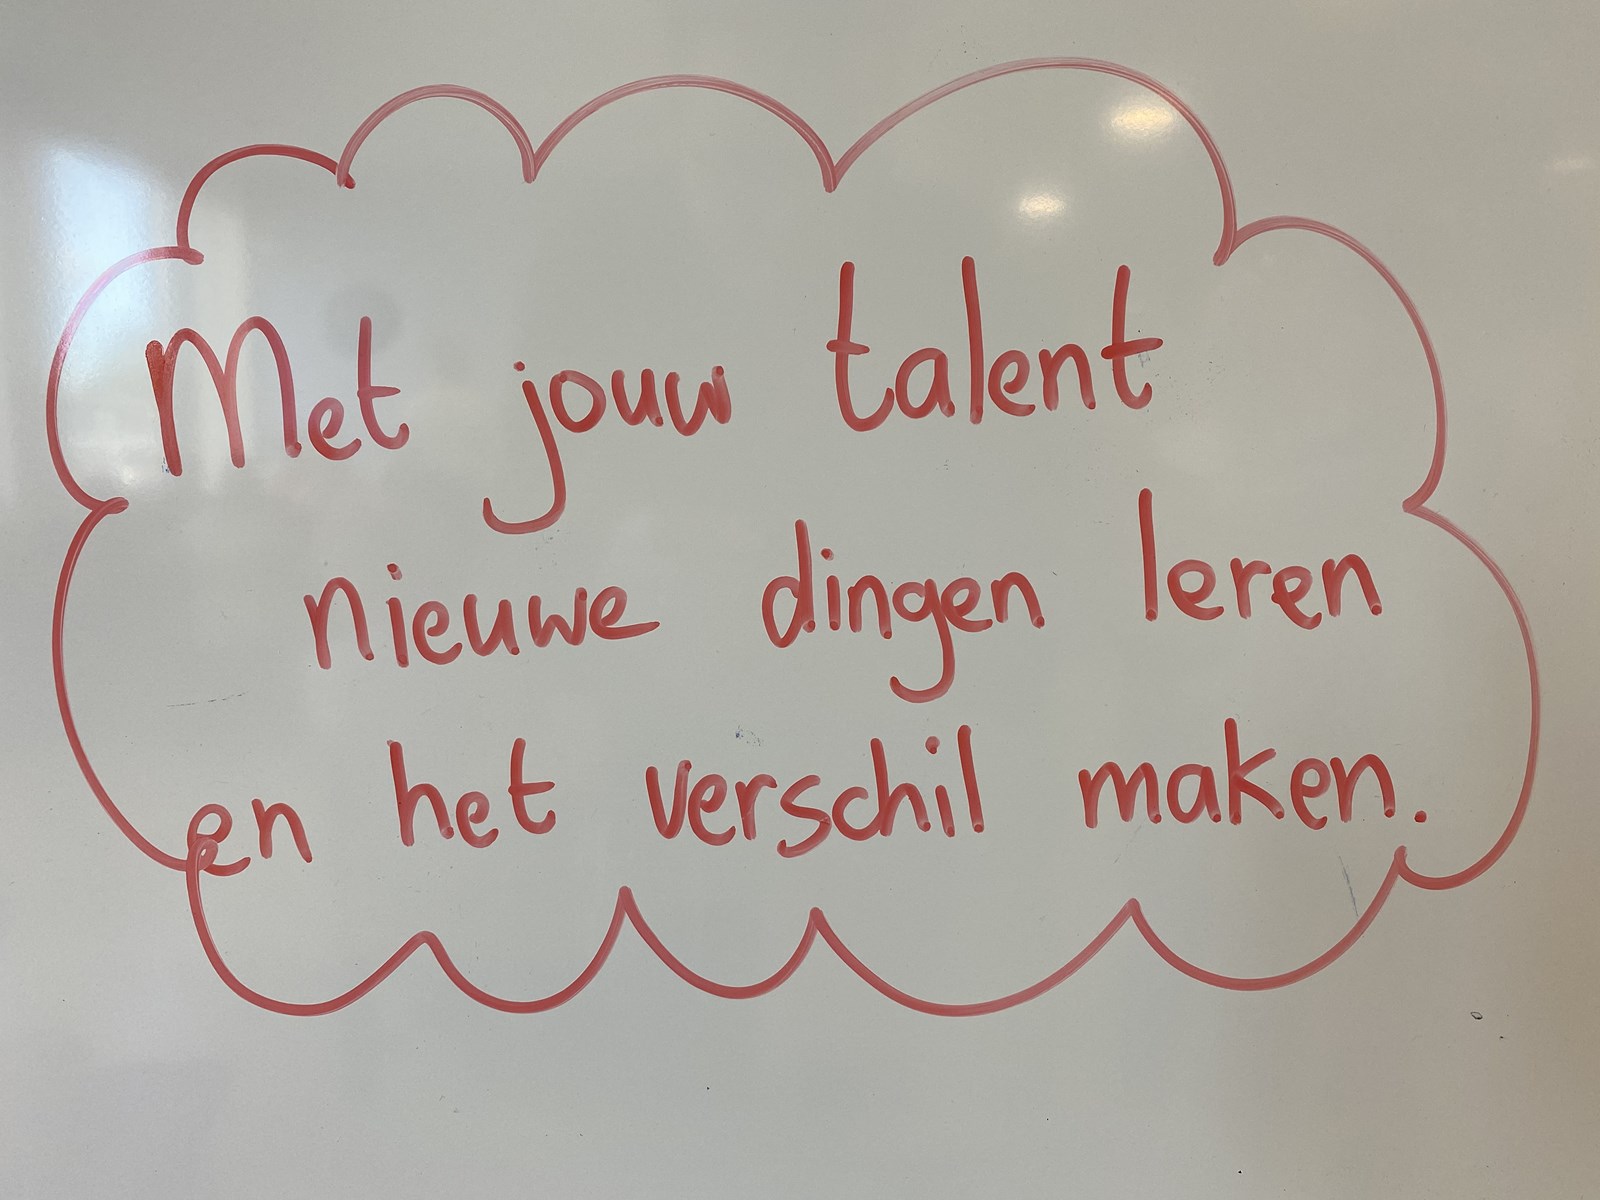 Met jouw talent
nieuwe dingen leren
en het verschil maken.